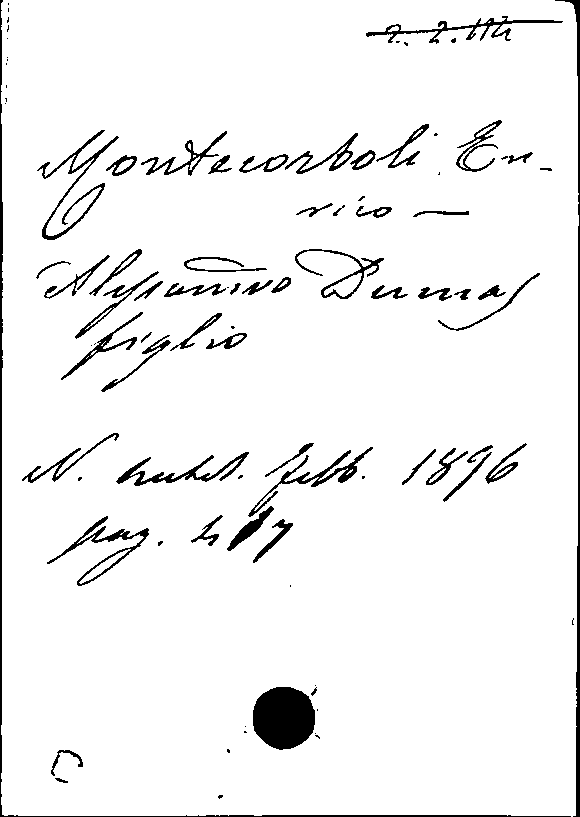 Montecorboli En-
rico —
Alessandro Dumas
figlio
N. Antol. febb. 1896
pag.